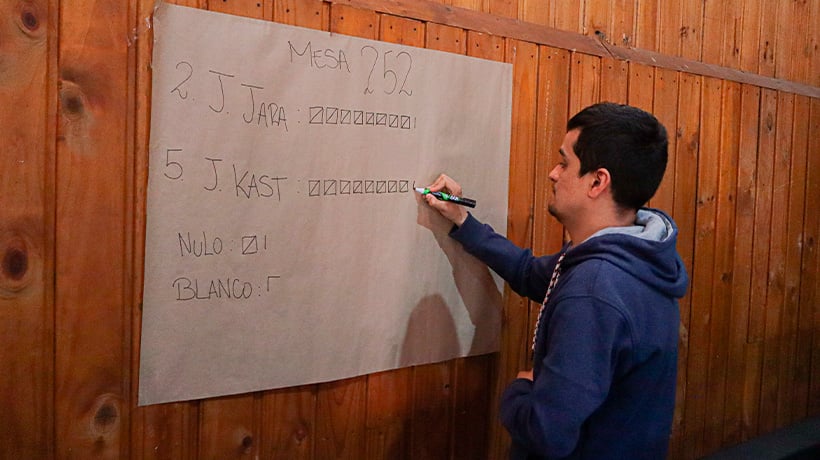 MESA 252
2. J. JARA :
5 J. KAST :
NULO :
BLANCO :